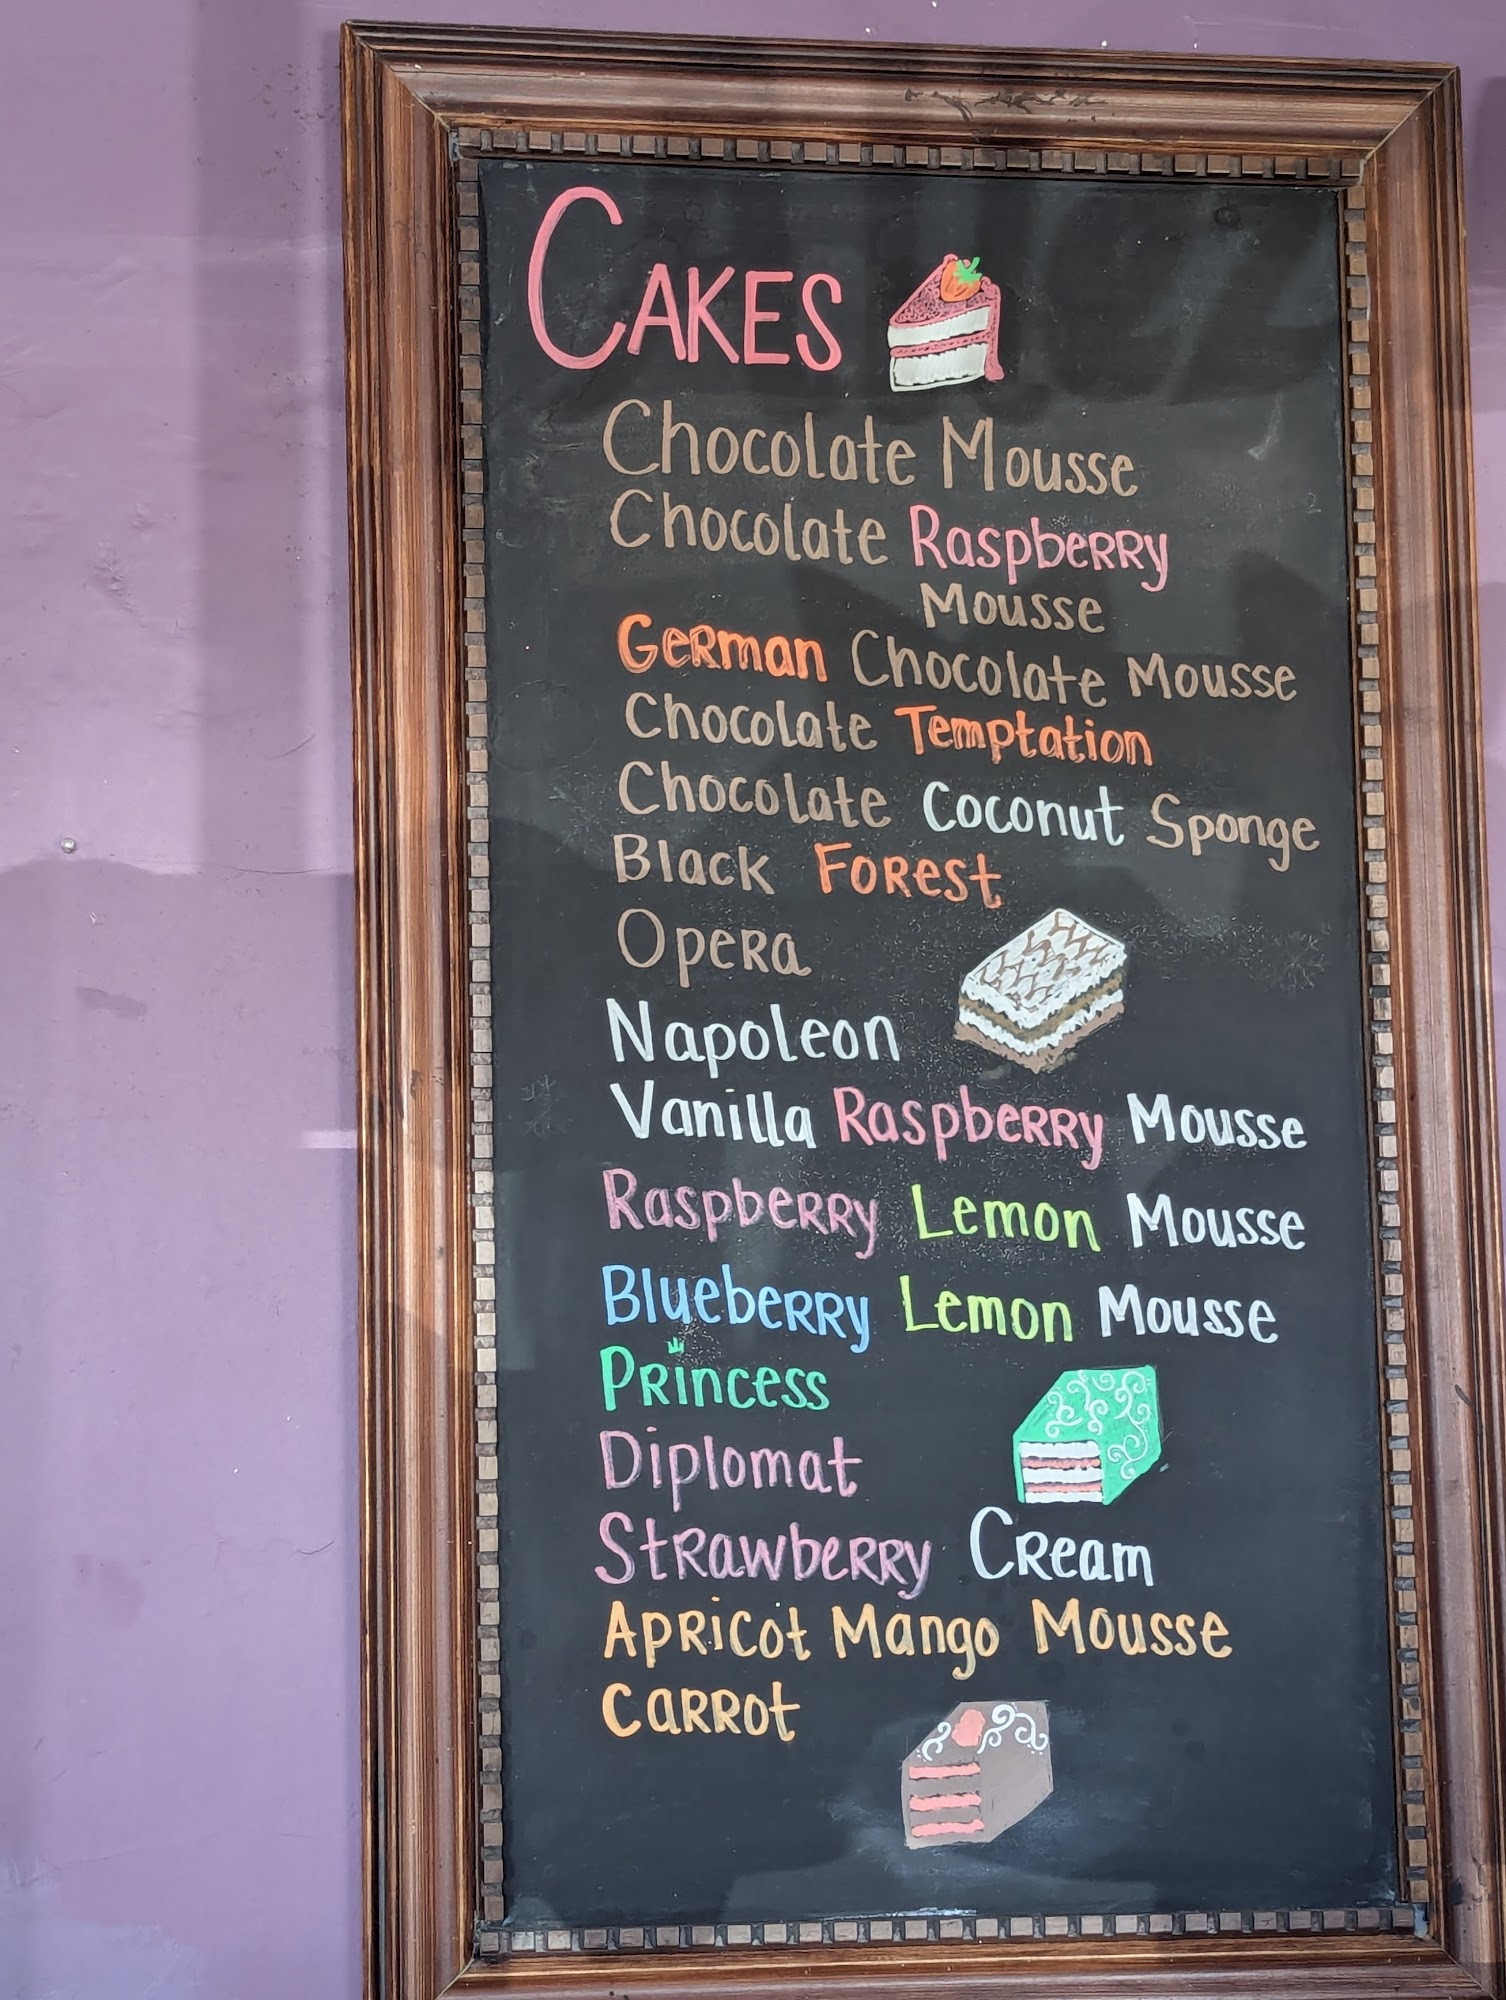 CAKES
Chocolate Mousse
Chocolate Raspberry
Mousse
German Chocolate Mousse
Chocolate Temptation
Chocolate Coconut Sponge
Black Forest
Opera
Napoleon
Vanilla Raspberry Mousse
Raspberry Lemon Mousse
Blueberry Lemon Mousse
Princess
Diplomat
Strawberry Cream
Apricot Mango Mousse
Carrot